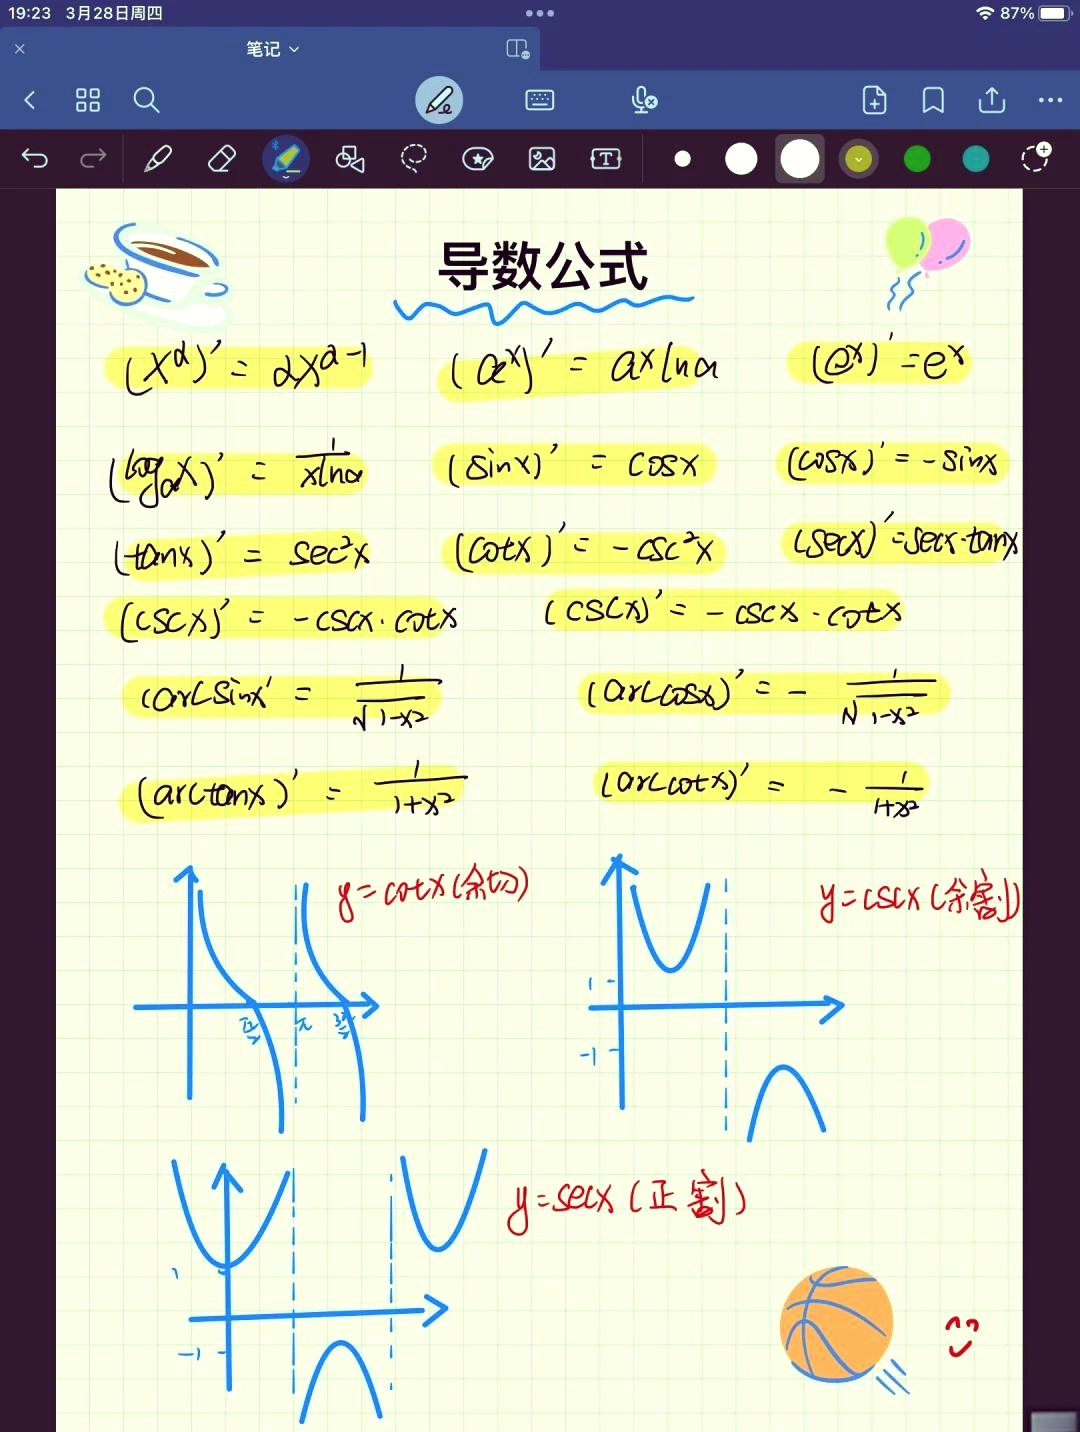 19:23 3月28日周四 87%
笔记
导数公式
(x^α)′ = αx^α-1 (a^x)′ = a^x lna (e^x)′ = e^x
(log_a x)′ = 1/xlna (sinx)′ = cosx (cosx)′ = -sinx
(tanx)′ = sec²x (cotx)′ = -csc²x (secx)′ = secx·tanx
(cscx)′ = -cscx·cotx (cscx)′ = -cscx·cotx
(arcsinx′ = 1/√1-x² (arccosx)′ = - 1/√1-x²
(arctanx)′ = 1/1+x² (arccotx)′ = - 1/1+x²
y=cotx(余切) y=cscx(余割)
1
π/2 π 3π/2
-1
y=secx(正割)
1
-1